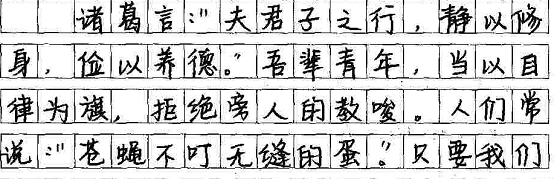 诸葛言:"夫君子之行,静以修
身,俭以养德。"吾辈青年,当以自
律为旗,拒绝旁人的教唆。人们常
说:"苍蝇不叮无缝的蛋。"只要我们